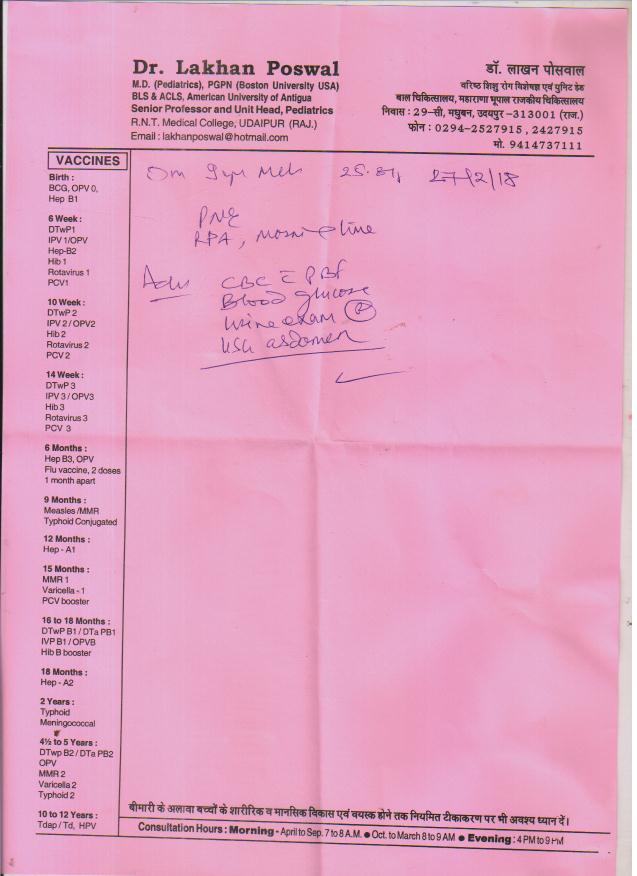 Dr. Lakhan Poswal
M.D. (Pediatrics), PGPN (Boston University USA)
BLS & ACLS, American University of Antigua
Senior Professor and Unit Head, Pediatrics
R.N.T. Medical College, UDAIPUR (RAJ.)
Email : lakhanposwal@hotmail.com
डॉ. लाखन पोसवाल
वरिष्ठ शिशु रोग विशेषज्ञ एवं युनिट हेड
बाल चिकित्सालय, महाराणा भूपाल राजकीय चिकित्सालय
निवास : 29-सी, मधुबन, उदयपुर-313001 (राज.)
फोन : 0294-2527915, 2427915
मो. 9414737111
VACCINES
Birth :
BCG, OPV 0,
Hep B1
6 Week :
DTwP1
IPV 1/OPV
Hep-B2
Hib 1
Rotavirus 1
PCV1
10 Week :
DTwP 2
IPV 2 / OPV2
Hib 2
Rotavirus 2
PCV 2
14 Week :
DTwP 3
IPV 3 / OPV3
Hib 3
Rotavirus 3
PCV 3
6 Months :
Hep B3, OPV
Flu vaccine, 2 doses
1 month apart
9 Months :
Measles /MMR
Typhoid Conjugated
12 Months :
Hep - A1
15 Months :
MMR 1
Varicella - 1
PCV booster
16 to 18 Months :
DTwP B1 / DTa PB1
IVP B1 / OPVB
Hib B booster
18 Months :
Hep - A2
2 Years :
Typhoid
Meningococcal
4½ to 5 Years :
DTwp B2 / DTa PB2
OPV
MMR 2
Varicella 2
Typhoid 2
10 to 12 Years :
Tdap / Td, HPV
Om 9yr 27/2/18
PNE
RPA,
Adv CBC c PBF
Blood glucose
Urine exam (R)
USG abdomen
बीमारी के अलावा बच्चों के शारीरिक व मानसिक विकास एवं वयस्क होने तक नियमित टीकाकरण पर भी अवश्य ध्यान दें।
Consultation Hours : Morning - April to Sep. 7 to 8 A.M. ● Oct. to March 8 to 9 AM ● Evening : 4 PM to 9 PM